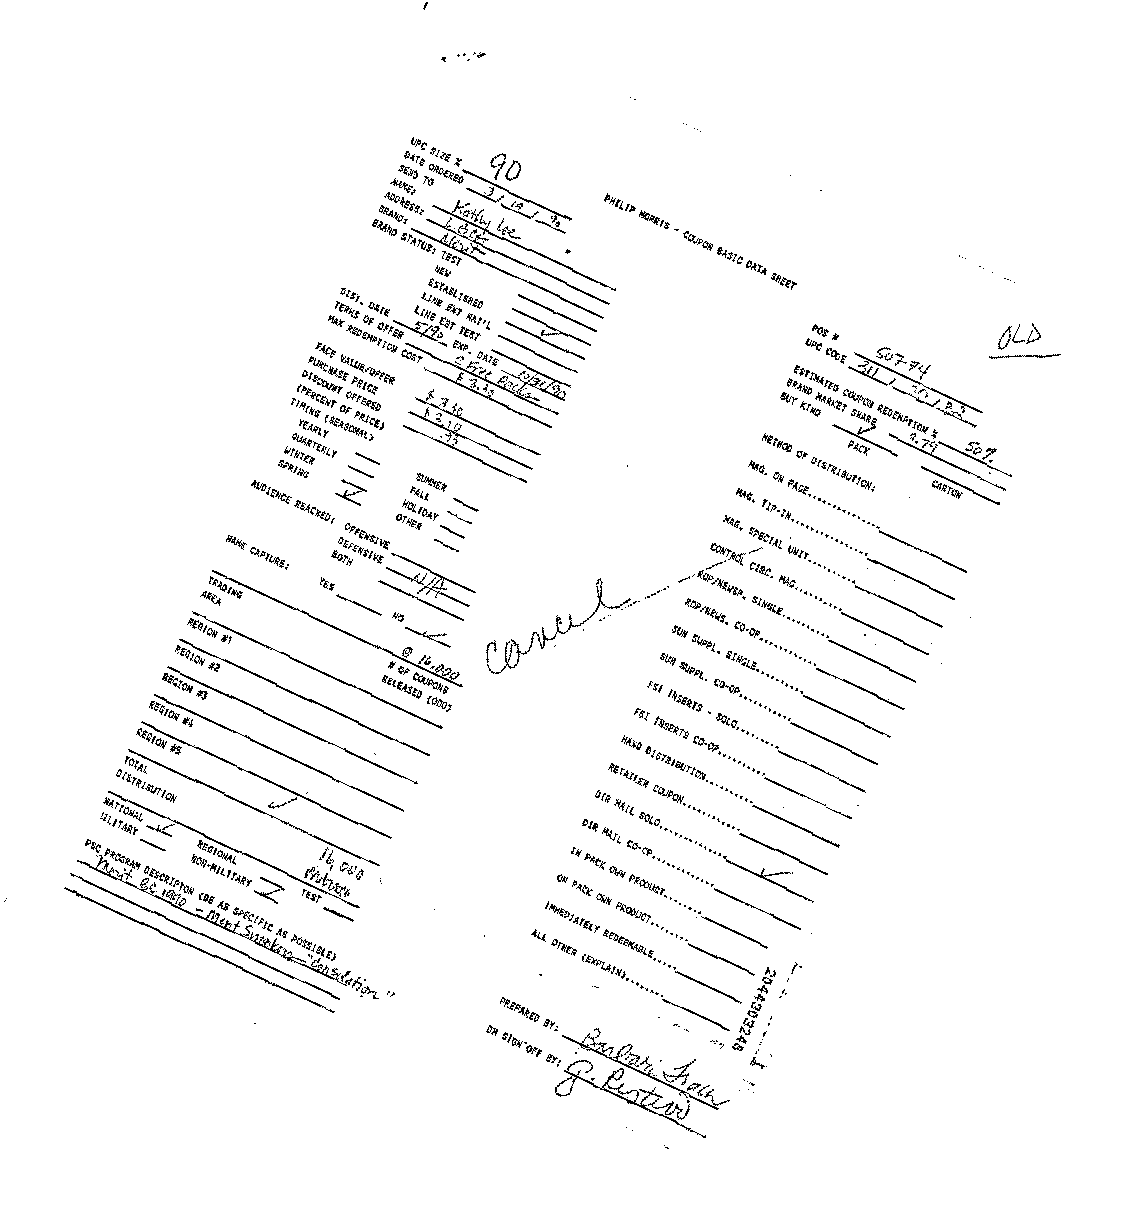 PHILIP MORRIS - COUPON BASIC DATA SHEET
OLD
UPC SIZE % 90
DATE ORDERED 3/19/90
SEND TO
NAME: Kathy Lee
ADDRESS:
BRAND: Merit
BRAND STATUS: TEST
NEW
ESTABLISHED
LINE EXT NAT'L
LINE EXT TEST
DIST. DATE 5/90 EXP. DATE 10/31/90
TERMS OF OFFER
MAX REDEMPTION COST
FACE VALUE/OFFER
PURCHASE PRICE
DISCOUNT OFFERED
(PERCENT OF PRICE)
TIMING (SEASONAL)
YEARLY
QUARTERLY
WINTER
SPRING
SUMMER
FALL
HOLIDAY
OTHER
AUDIENCE REACHED: OFFENSIVE
DEFENSIVE
BOTH N/A
NAME CAPTURE: YES NO
@ 16,000
TRADING
AREA
# OF COUPONS
RELEASED (000)
REGION #1
REGION #2
REGION #3
REGION #4
REGION #5
TOTAL
DISTRIBUTION
16,000
NATIONAL REGIONAL TEST
MILITARY NON-MILITARY
PSC PROGRAM DESCRIPTON (BE AS SPECIFIC AS POSSIBLE)
Merit - Merit Smokers - "Consolation"
cancel
POS # 50774
UPC CODE
ESTIMATED COUPON REDEMPTION % 50%
BRAND MARKET SHARE 3.79
BUY KING PACK CARTON
METHOD OF DISTRIBUTION:
MAG. ON PAGE
MAG. TIP-IN
MAG. SPECIAL UNIT
CONTROL CIRC. MAG.
ROP/NEWSP. SINGLE
ROP/NEWS. CO-OP
SUN SUPPL. SINGLE
SUN SUPPL. CO-OP
FSI INSERTS - SOLO
FSI INSERTS CO-OP
HAND DISTRIBUTION
RETAILER COUPON
DIR MAIL SOLO
DIR MAIL CO-OP
IN PACK OWN PRODUCT
ON PACK OWN PRODUCT
IMMEDIATELY REDEEMABLE
ALL OTHER (EXPLAIN)
PREPARED BY: Barbara
DM SIGN-OFF BY:
2044303245